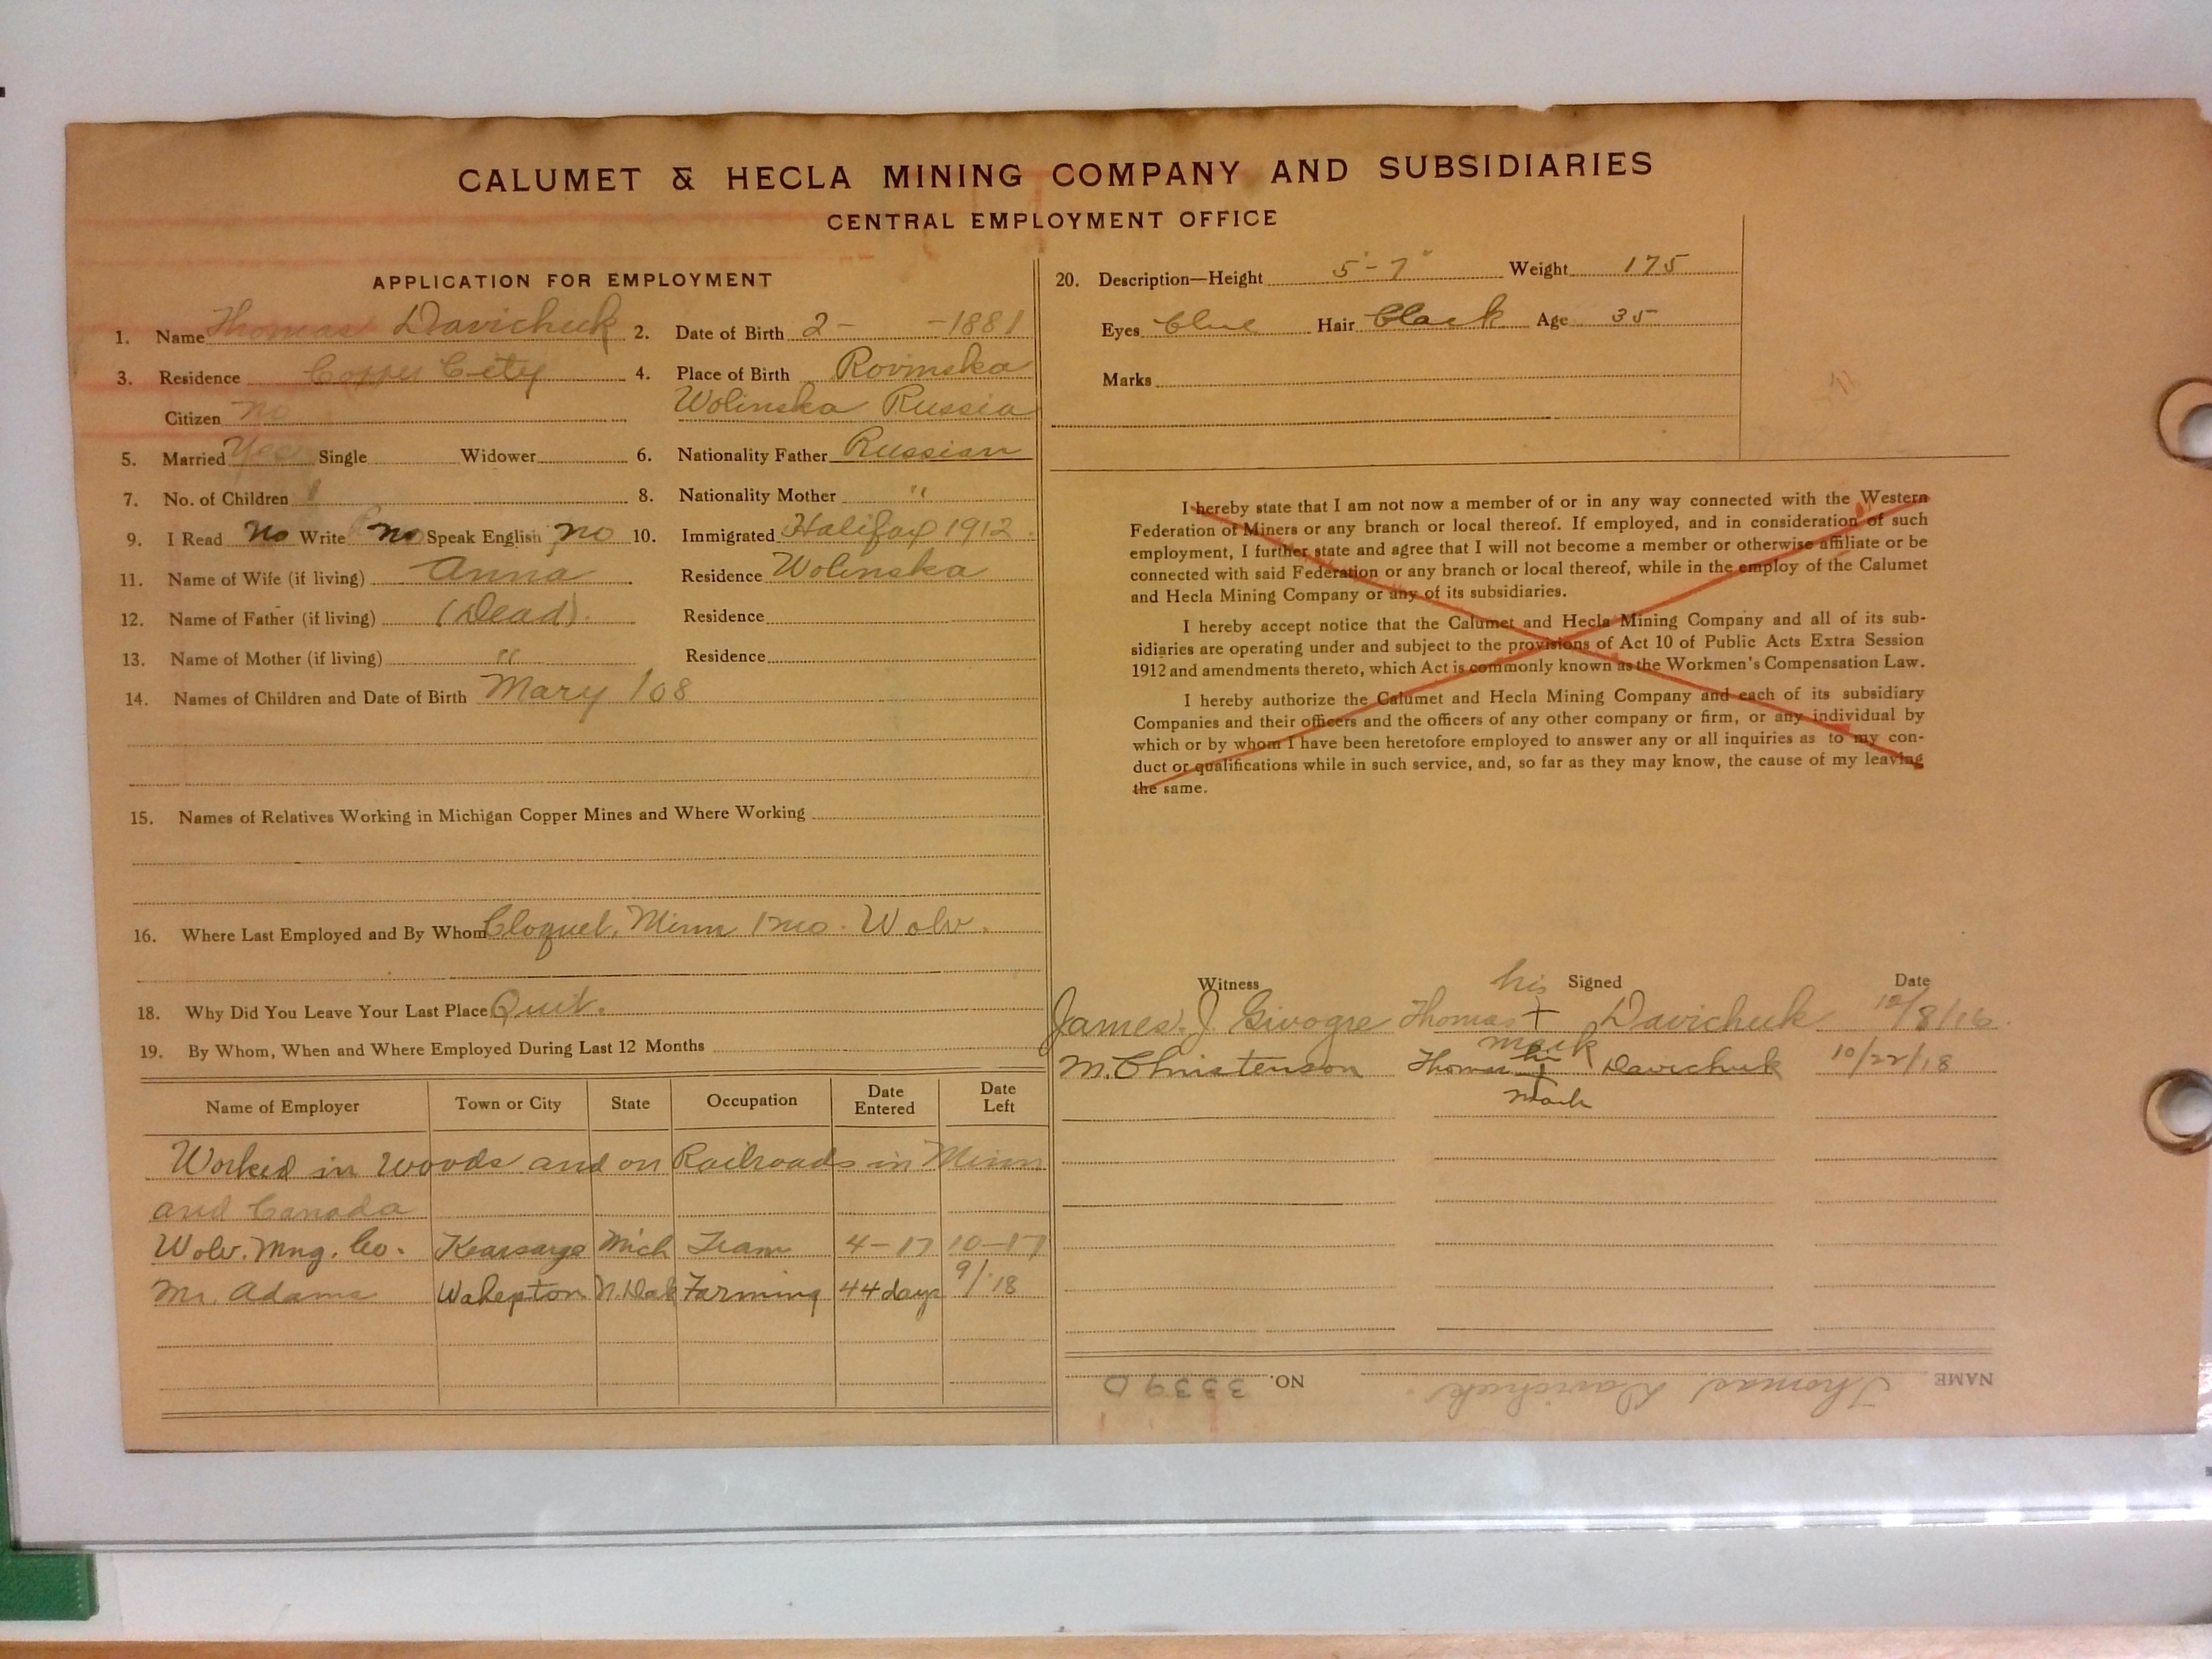 CALUMET & HECLA MINING COMPANY AND SUBSIDIARIES
CENTRAL EMPLOYMENT OFFICE
APPLICATION FOR EMPLOYMENT
1. Name Thomas Davichuk 2. Date of Birth 2- -1881
3. Residence Copper City 4. Place of Birth Rovinska
Citizen no Wolinska Russia
5. Married Yes Single Widower 6. Nationality Father Russian
7. No. of Children 1 8. Nationality Mother "
9. I Read No Write no Speak English no 10. Immigrated Halifax 1912
11. Name of Wife (if living) Anna Residence Wolinska
12. Name of Father (if living) (Dead) Residence
13. Name of Mother (if living) " Residence
14. Names of Children and Date of Birth Mary 108
15. Names of Relatives Working in Michigan Copper Mines and Where Working
16. Where Last Employed and By Whom Cloquet, Minn 1 mo. Wolv.
18. Why Did You Leave Your Last Place Quit.
19. By Whom, When and Where Employed During Last 12 Months
Name of Employer Town or City State Occupation Date Entered Date Left
Worked in woods and on Railroads in Minn
and Canada
Wolv. Mng. Co. Kearsarge Mich Tram 4-17 10-17
Mr. Adams Wahepton N. Dak Farming 44 days 9/18
20. Description—Height 5'-7" Weight 175
Eyes blue Hair black Age 35
Marks
I hereby state that I am not now a member of or in any way connected with the Western
Federation of Miners or any branch or local thereof. If employed, and in consideration of such
employment, I further state and agree that I will not become a member or otherwise affiliate or be
connected with said Federation or any branch or local thereof, while in the employ of the Calumet
and Hecla Mining Company or any of its subsidiaries.
I hereby accept notice that the Calumet and Hecla Mining Company and all of its sub-
sidiaries are operating under and subject to the provisions of Act 10 of Public Acts Extra Session
1912 and amendments thereto, which Act is commonly known as the Workmen's Compensation Law.
I hereby authorize the Calumet and Hecla Mining Company and each of its subsidiary
Companies and their officers and the officers of any other company or firm, or any individual by
which or by whom I have been heretofore employed to answer any or all inquiries as to my con-
duct or qualifications while in such service, and, so far as they may know, the cause of my leaving
the same.
Witness his Signed Date
James. J. Givogre Thomas + Davichuk 10/8/16
mark
M. Christenson Thomas his + Davichuk 10/22/18
mark
NAME Thomas Davichuk NO. 33390